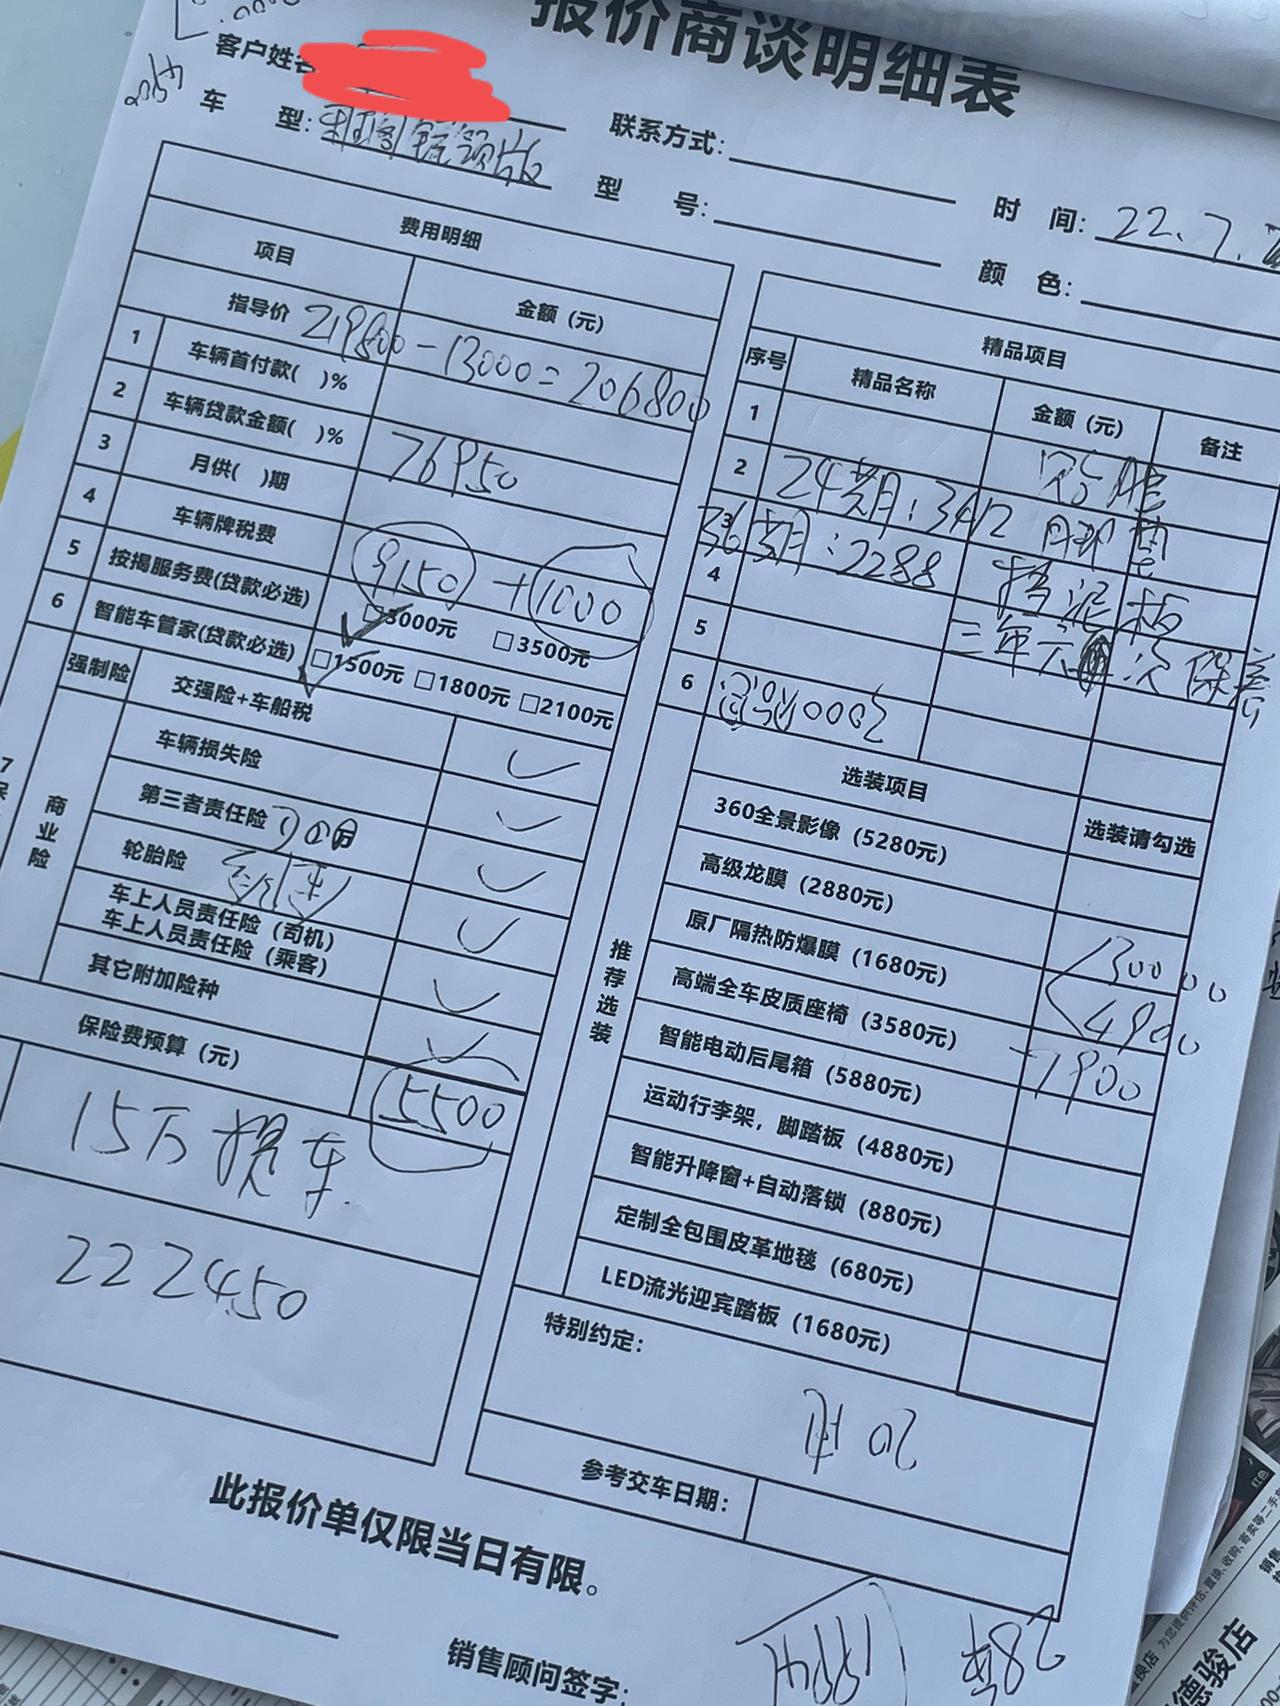 报价商谈明细表
客户姓名
联系方式:
时 间: 22.7.
车 型: 锐领版
型 号:
颜 色:
费用明细
项目
金额（元）
指导价 219800-13000=206800
1 车辆首付款( )%
2 车辆贷款金额( )% 76950
3 月供( )期
4 车辆牌税费 9150+1000
5 按揭服务费(贷款必选) □3000元 □3500元
6 智能车管家(贷款必选) □1500元 □1800元 □2100元
7
强制险 交强险+车船税
商业险
车辆损失险
第三者责任险
轮胎险
车上人员责任险（司机）
车上人员责任险（乘客）
其它附加险种
保险费预算（元） 5500
15万提车
222450
精品项目
序号 精品名称 金额（元） 备注
1
2 24期:3412 脚垫
3 36期:2288 挡泥板
4 三年六次保养
5
6
推荐选装
选装项目 选装请勾选
360全景影像（5280元）
高级龙膜（2880元）
原厂隔热防爆膜（1680元）
高端全车皮质座椅（3580元）
智能电动后尾箱（5880元）
运动行李架，脚踏板（4880元）
智能升降窗+自动落锁（880元）
定制全包围皮革地毯（680元）
LED流光迎宾踏板（1680元）
4900
7900
特别约定：
参考交车日期：
此报价单仅限当日有限。
销售顾问签字：
德骏店